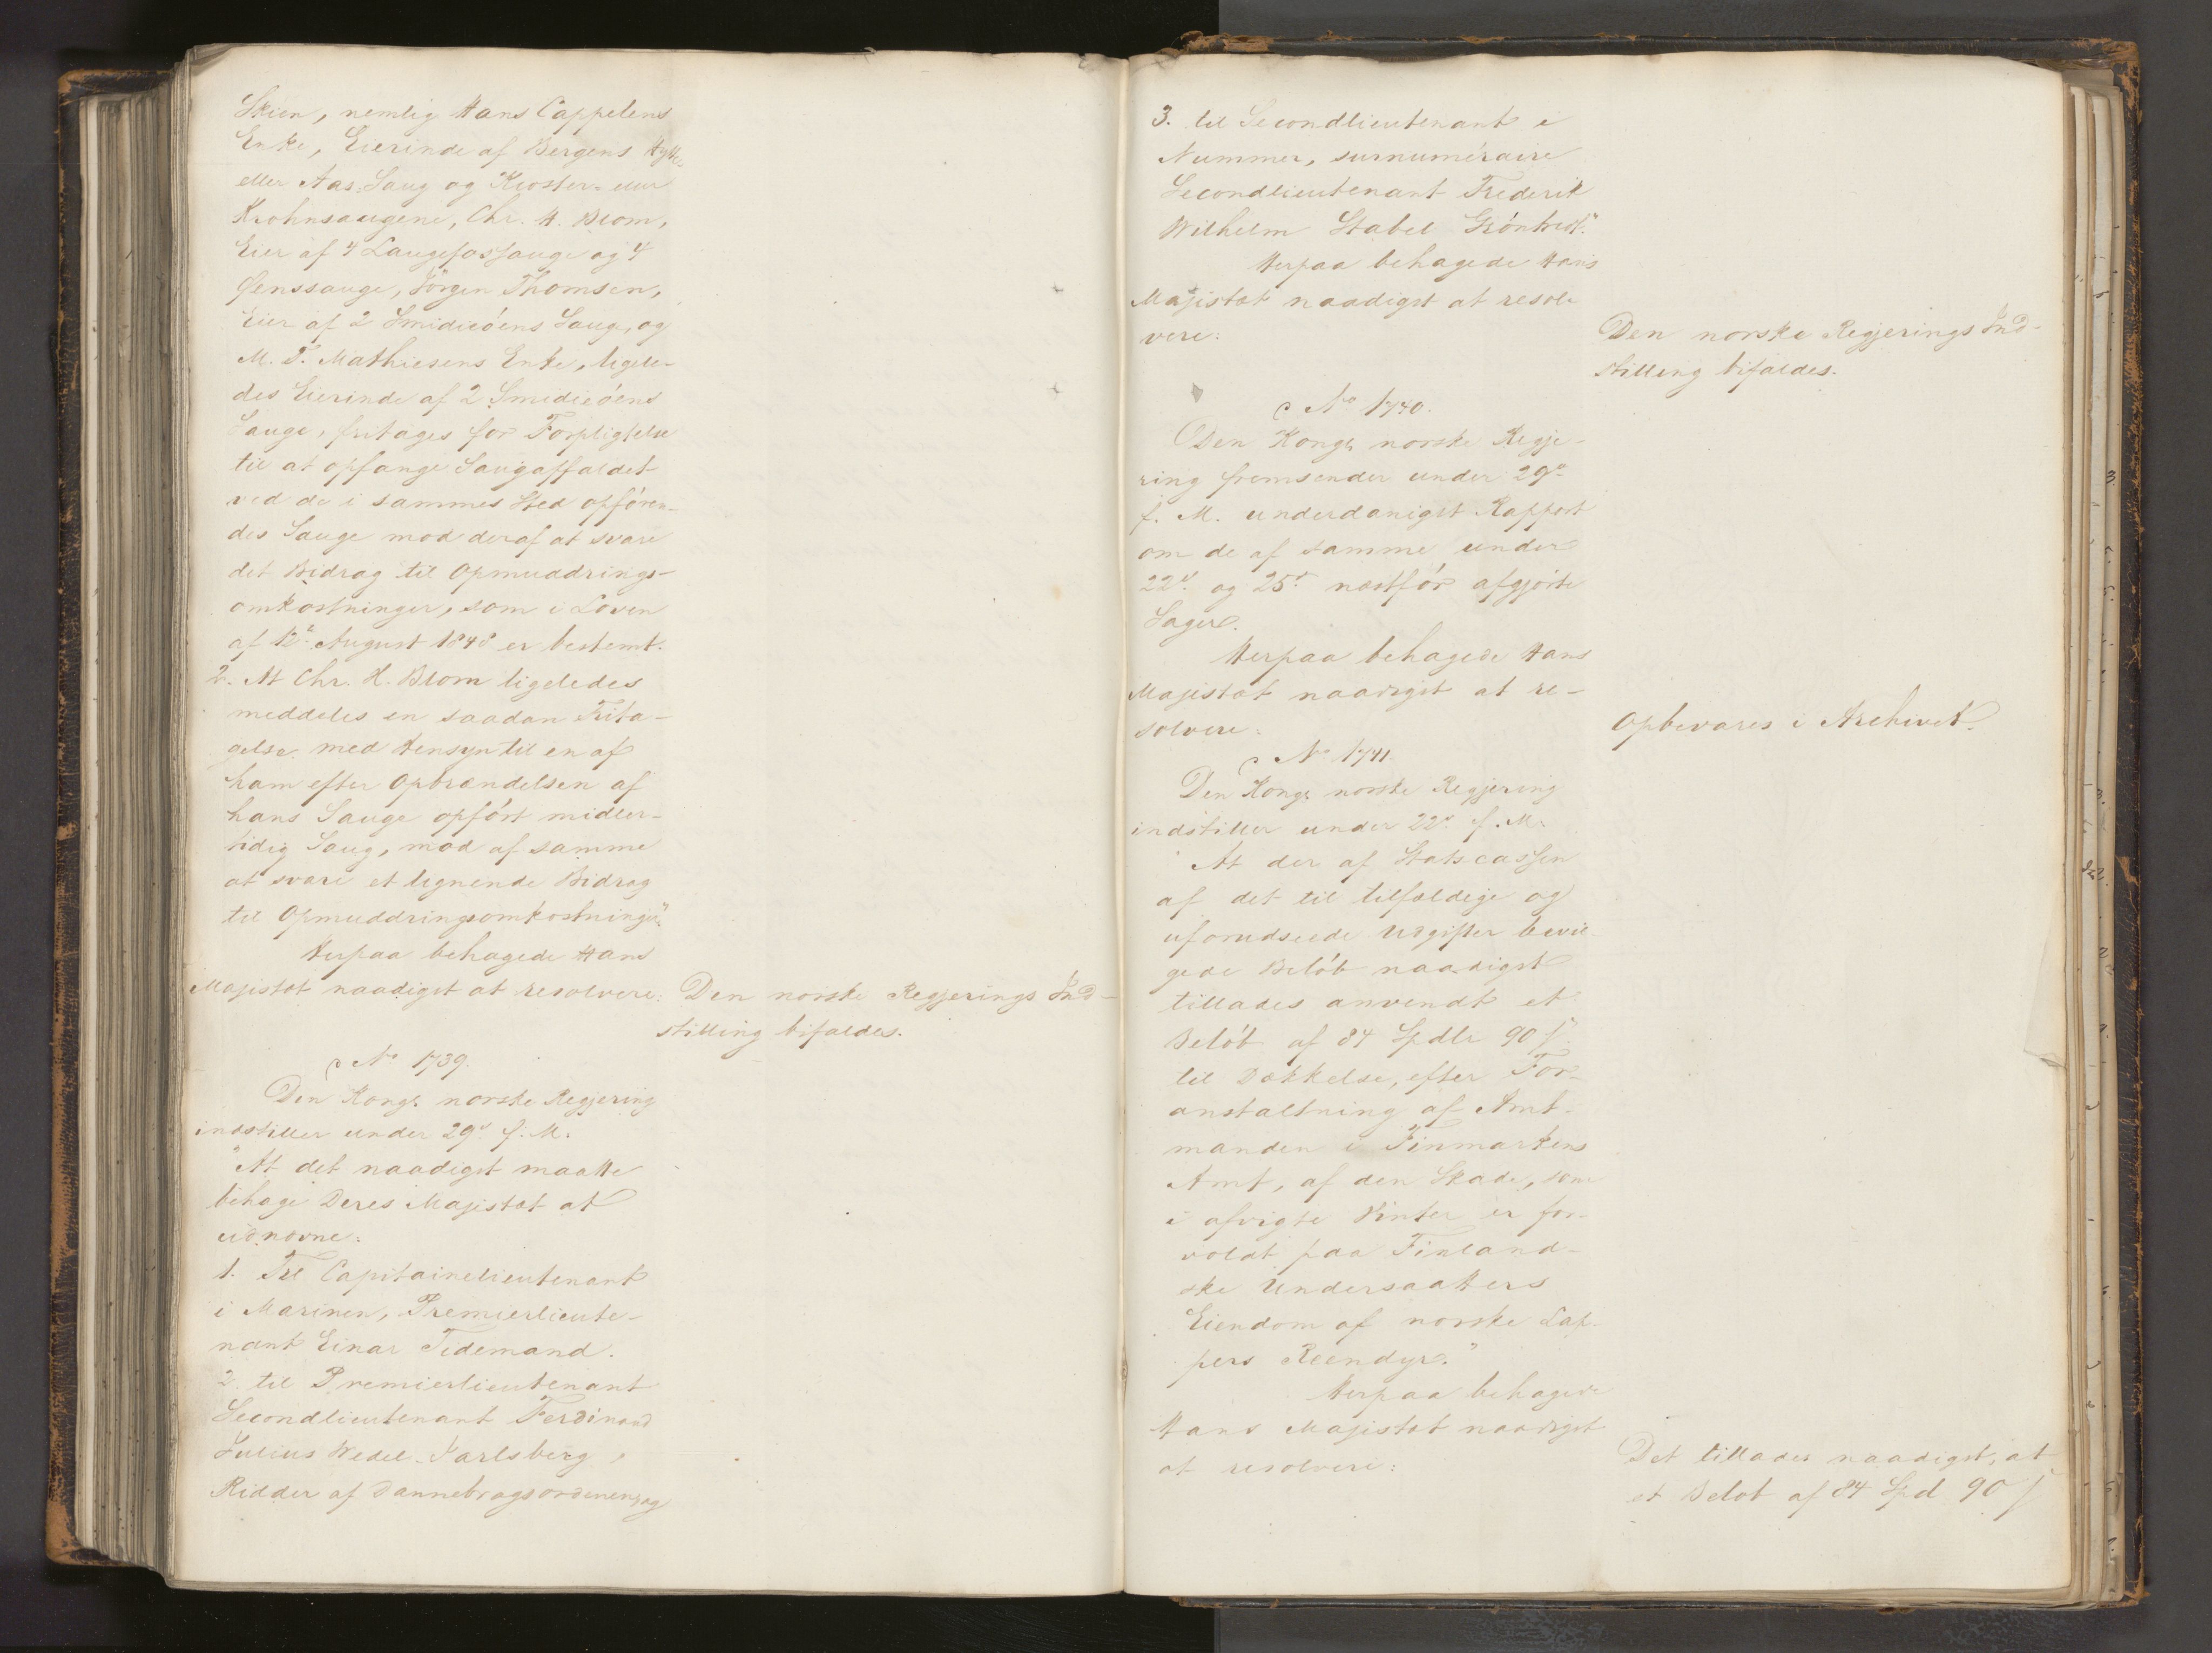 Skien, nemlig Hans Cappelens
Enke, Eierinde af Bergens Hytte-
eller Aas-Saug og Kloster- eller
Krohnsaugene, Chr. H. Blom,
Eier af 4 Langefossauge og 4
Øenssauge, Jörgen Thomsen,
Eier af 2 Smidieöens Saug, og
M. T. Mathiesens Enke, ligele-
des Eierinde af 2 Smidieöens
Sauge, fritages for Forpligtelse
til at opfange Saugaffaldet
ved de i sammes Sted opfören-
des Sauge mod deraf at svare
det Bidrag til Opmuddrings-
omkostninger, som i Loven
af 12te August 1848 er bestemt.
2. At Chr. H. Blom ligeledes
meddeles en saadan Frita-
gelse med Hensyn til en af
ham efter Opbrændelsen af
hans Sauge opfört midler-
tidig Saug, mod af samme
at svare et lignende Bidrag
til Opmuddringsomkostninger."
Herpaa behagede Hans
Majestæt naadigst at resolvere:
Den norske Regjerings Ind-
stilling bifaldes.
No 1739.
Den Kongl. norske Regjering
indstiller under 29d. f. M.
"At det naadigst maatte
behage Deres Majestæt at
udnævne:
1. Til Capitainelieutenant
i Marinen, Premierlieute-
nant Einar Tidemand.
2. til Premierlieutenant
Secondlieutenant Ferdinand
Julius Wedel-Jarlsberg,
Ridder af Dannebrogsordenen, og
3. til Secondlieutenant i
Nummer, surnuméraire
Secondlieutenant Frederik
Wilhelm Stabel
Herpaa behagede Hans
Majestæt naadigst at resol-
vere:
Den norske Regjerings Ind-
stilling bifaldes.
No 1740.
Den Kongl. norske Regje-
ring fremsender under 29d.
f. M. underdanigst Rapport
om de af samme under
22d. og 25d. næstför afgjörte
Sager.
Herpaa behagede Hans
Majestæt naadigst at re-
solvere:
Opbevares i Archivet.
No 1741.
Den Kongl. norske Regjering
indstiller under 22d. f. M.
"At der af Statscassen
af det til tilfældige og
uforudseede Udgifter bevil-
gede Belöb naadigst
tillades anvendt et
Belöb af 84 Spdlr 90 ſ
til Dækkelse, efter For-
anstaltning af Amt-
manden i Finmarkens
Amt, af den Skade, som
i afvigte Vinter er for-
voldt paa Finland-
ske Undersaatters
Eiendom af norske Lap-
pers Reendyr."
Herpaa behagede
Hans Majestæt naadigst
at resolvere:
Det tillades naadigst, at
et Beløb af 84 Spd 90 ſ